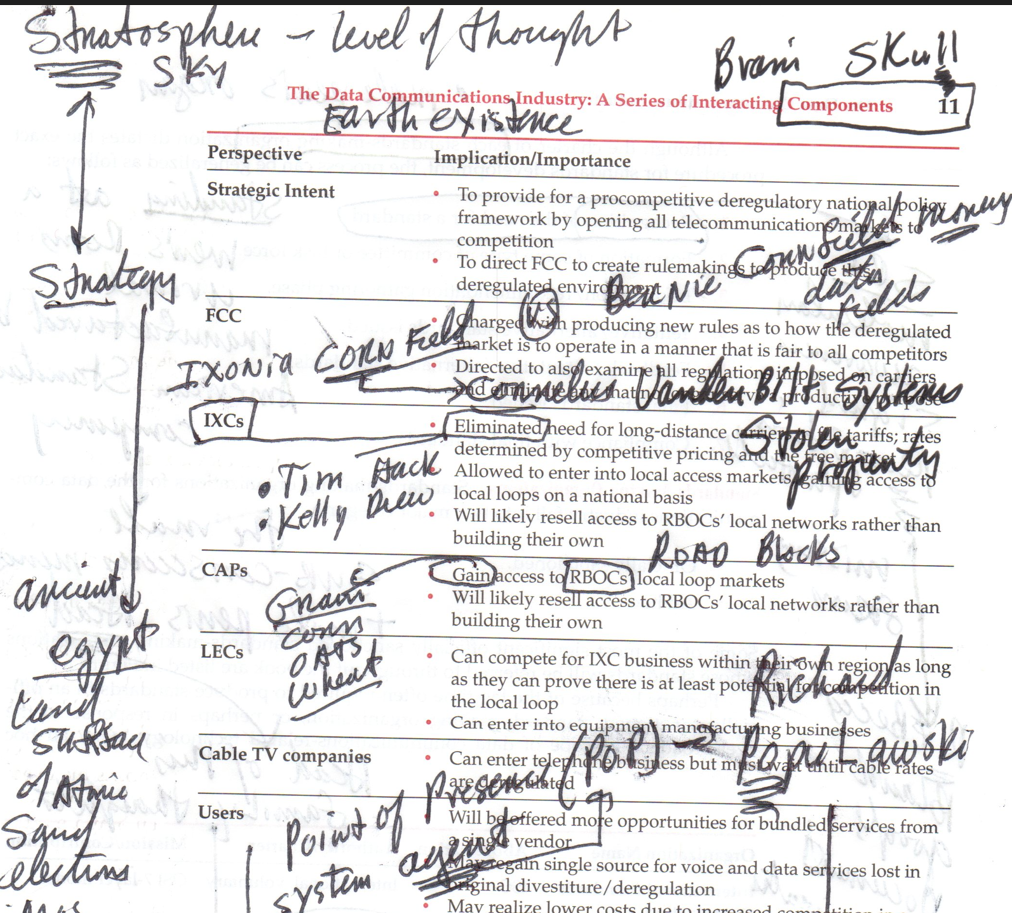 Stratosphere - level of thought
SKY
Brain SKull
The Data Communications Industry: A Series of Interacting Components 11
Earth existence
Perspective Implication/Importance
Strategic Intent • To provide for a procompetitive deregulatory national policy
framework by opening all telecommunications markets to
competition
• To direct FCC to create rulemakings to produce this
deregulated environment
Cornfield money
data
fields
Strategy
VS BERNIE
FCC • Charged with producing new rules as to how the deregulated
market is to operate in a manner that is fair to all competitors
• Directed to also examine all regulations imposed on carriers
and eliminate any that no longer serve a productive purpose
IXONIA CORN Field
Cornelius VanderBilt Systems
Stolen
property
IXCs • Eliminated need for long-distance carriers to file tariffs; rates
determined by competitive pricing and the free market
• Allowed to enter into local access markets, gaining access to
local loops on a national basis
• Will likely resell access to RBOCs' local networks rather than
building their own
• Tim Hack
• Kelly Drew
ROAD Blocks
CAPs • Gain access to RBOCs' local loop markets
• Will likely resell access to RBOCs' local networks rather than
building their own
Grain
corn
OATS
wheat
ancient
egypt
land
surface
of Atomic
Sand
elections
LECs • Can compete for IXC business within their own region as long
as they can prove there is at least potential for competition in
the local loop
• Can enter into equipment manufacturing businesses
Richard
PopuLawski
Cable TV companies • Can enter telephone business but must wait until cable rates
are deregulated
Point of Presence (POP)
agent
system
Users • Will be offered more opportunities for bundled services from
a single vendor
• May regain single source for voice and data services lost in
original divestiture/deregulation
• May realize lower costs due to increased competition in